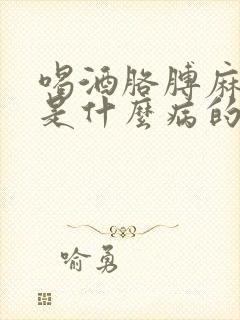 喝酒胳膊麻
是什麼病的
喻勇